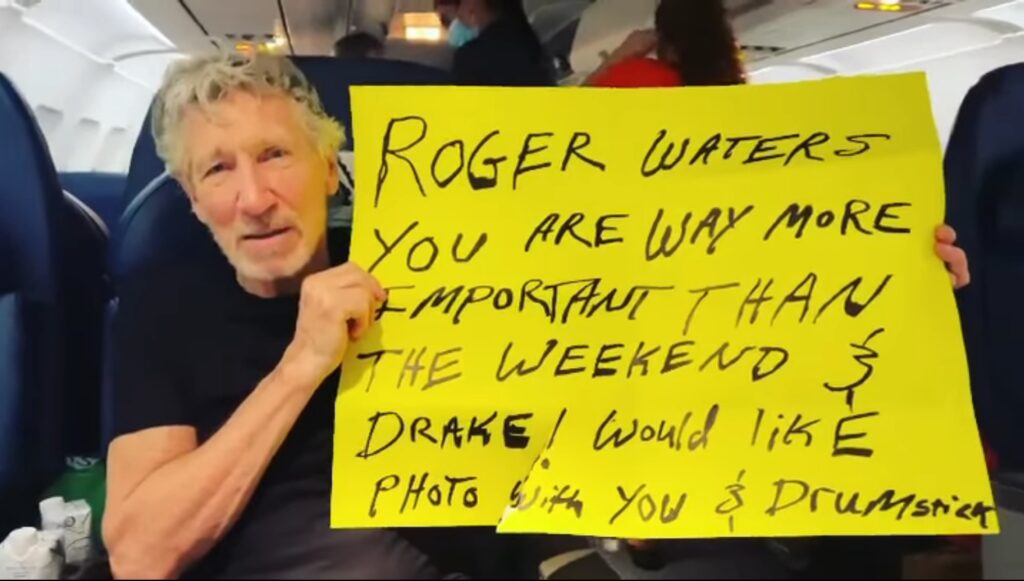 ROGER WATERS
YOU ARE WAY MORE
IMPORTANT THAN
THE WEEKEND &
DRAKE! Would likE
PHOTO with YOU & DRUMstick